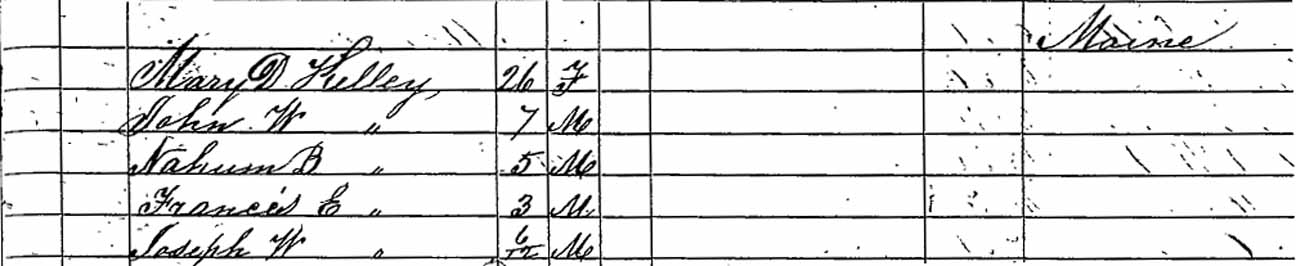 Maine
Mary D. Kelley, 26 F
John W " 7 M
Nahum B " 5 M
Francis E " 3 M
Joseph W " 6/12 M